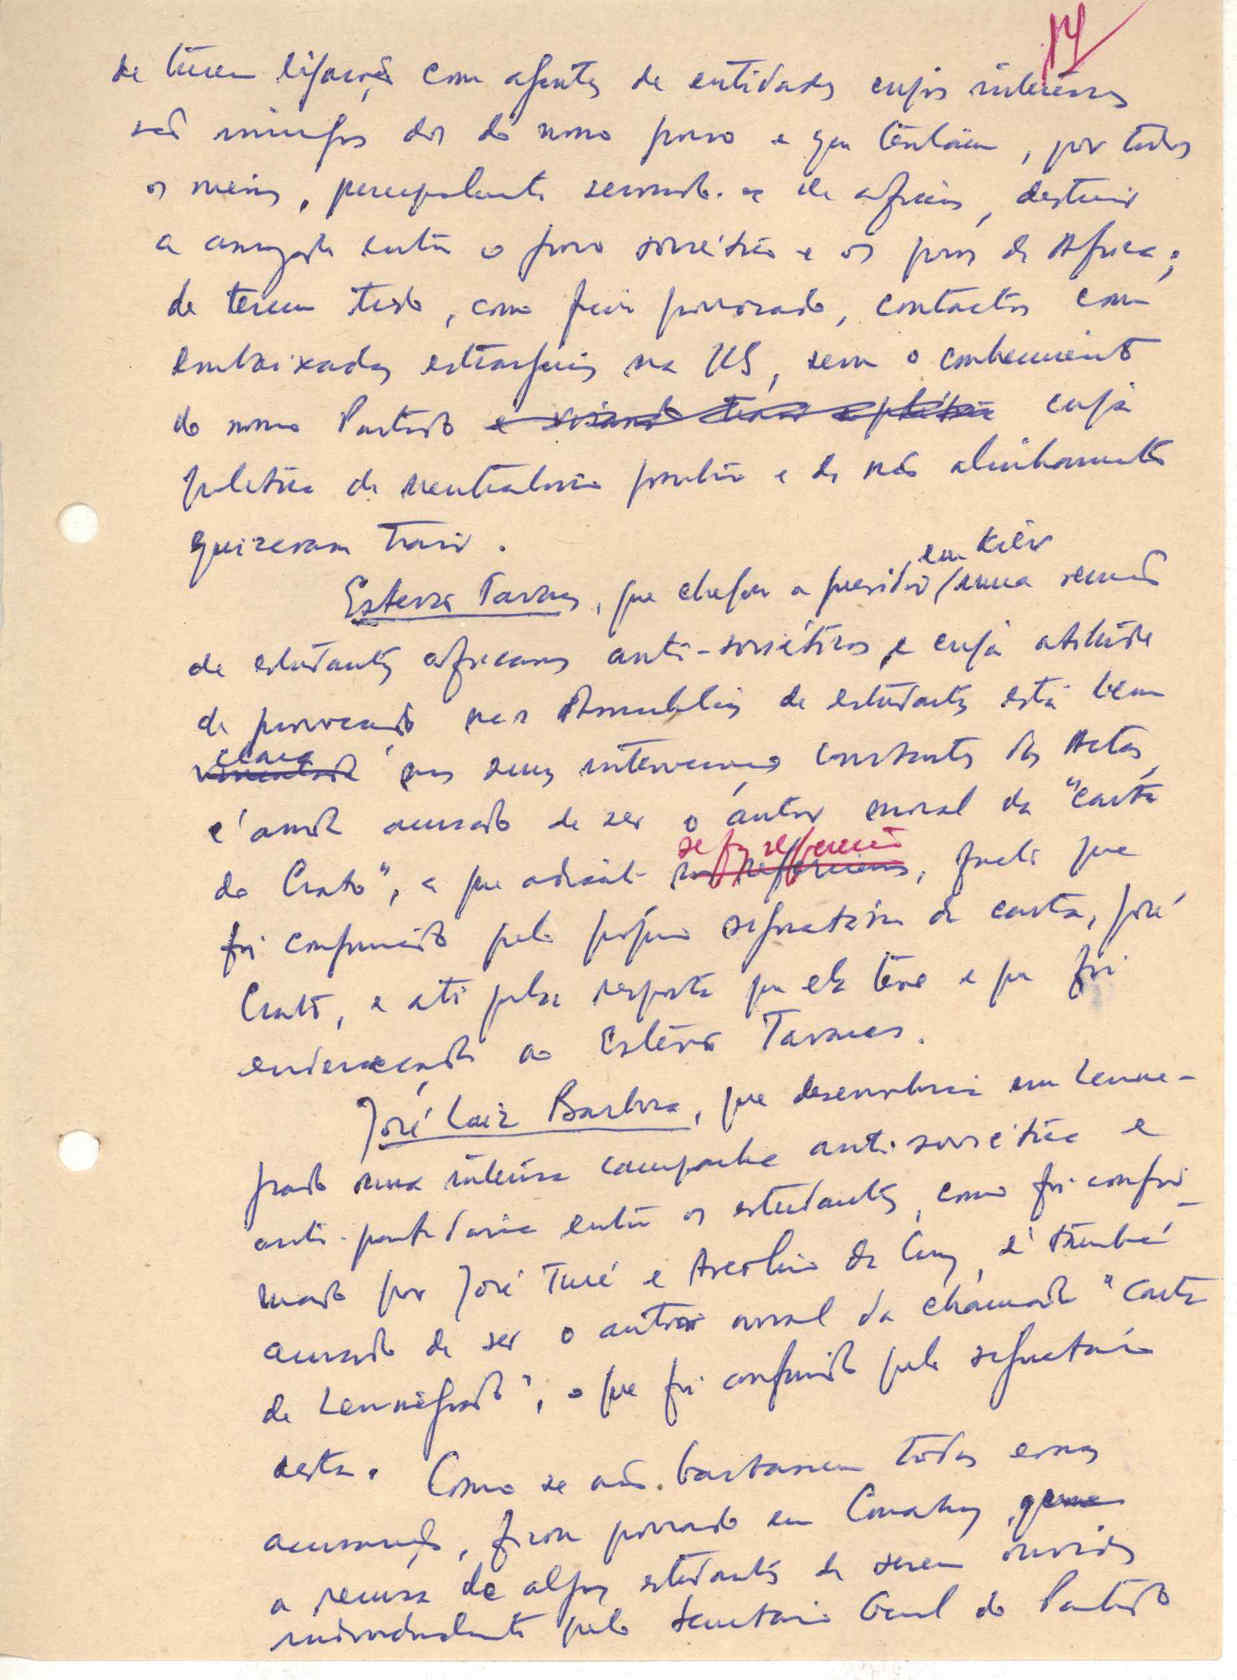 14
de terem ligações com agentes de entidades cujos interesses
são inimigos dos do nosso povo e que tentam, por todos
os meios, servindo-se de africanos, destruir
a amizade entre o povo soviético e os povos de África;
de terem tido, como ficou provado, contactos com
embaixadas estrangeiras na US, sem o conhecimento
do nosso Partido cuja
política de neutralismo positivo e de não alinhamento
quizeram trair.
em Kiev
Esterzo Tavares, que chegou a presidir numa reunião
de estudantes africanos anti-soviéticos, e cuja atitude
de provocação nas Assembleias de estudantes está bem
clara nas suas intervenções constantes das Actas,
é ainda acusado de ser o autor moral da "carta
se fez referência
do Crato", a que adiante, facto que
foi confirmado pelo próprio signatário da carta, José
Crato, e até pela resposta que ela teve e que foi
endereçada ao Estevão Tavares.
José Luiz Barbosa, que desenvolveu em Lenine-
grado uma intensa campanha anti-soviética e
anti-partidária entre os estudantes, como foi confir-
mado por José Turé e Arcolino da Cruz, é também
acusado de ser o autor moral da chamada "Carta
de Leninegrado", o que foi confirmado pelo signatário
desta. Como se não bastassem todas essas
acusações, ficou provado em Conakry, que
a recusa de alguns estudantes de serem ouvidos
individualmente pelo Secretário Geral do Partido